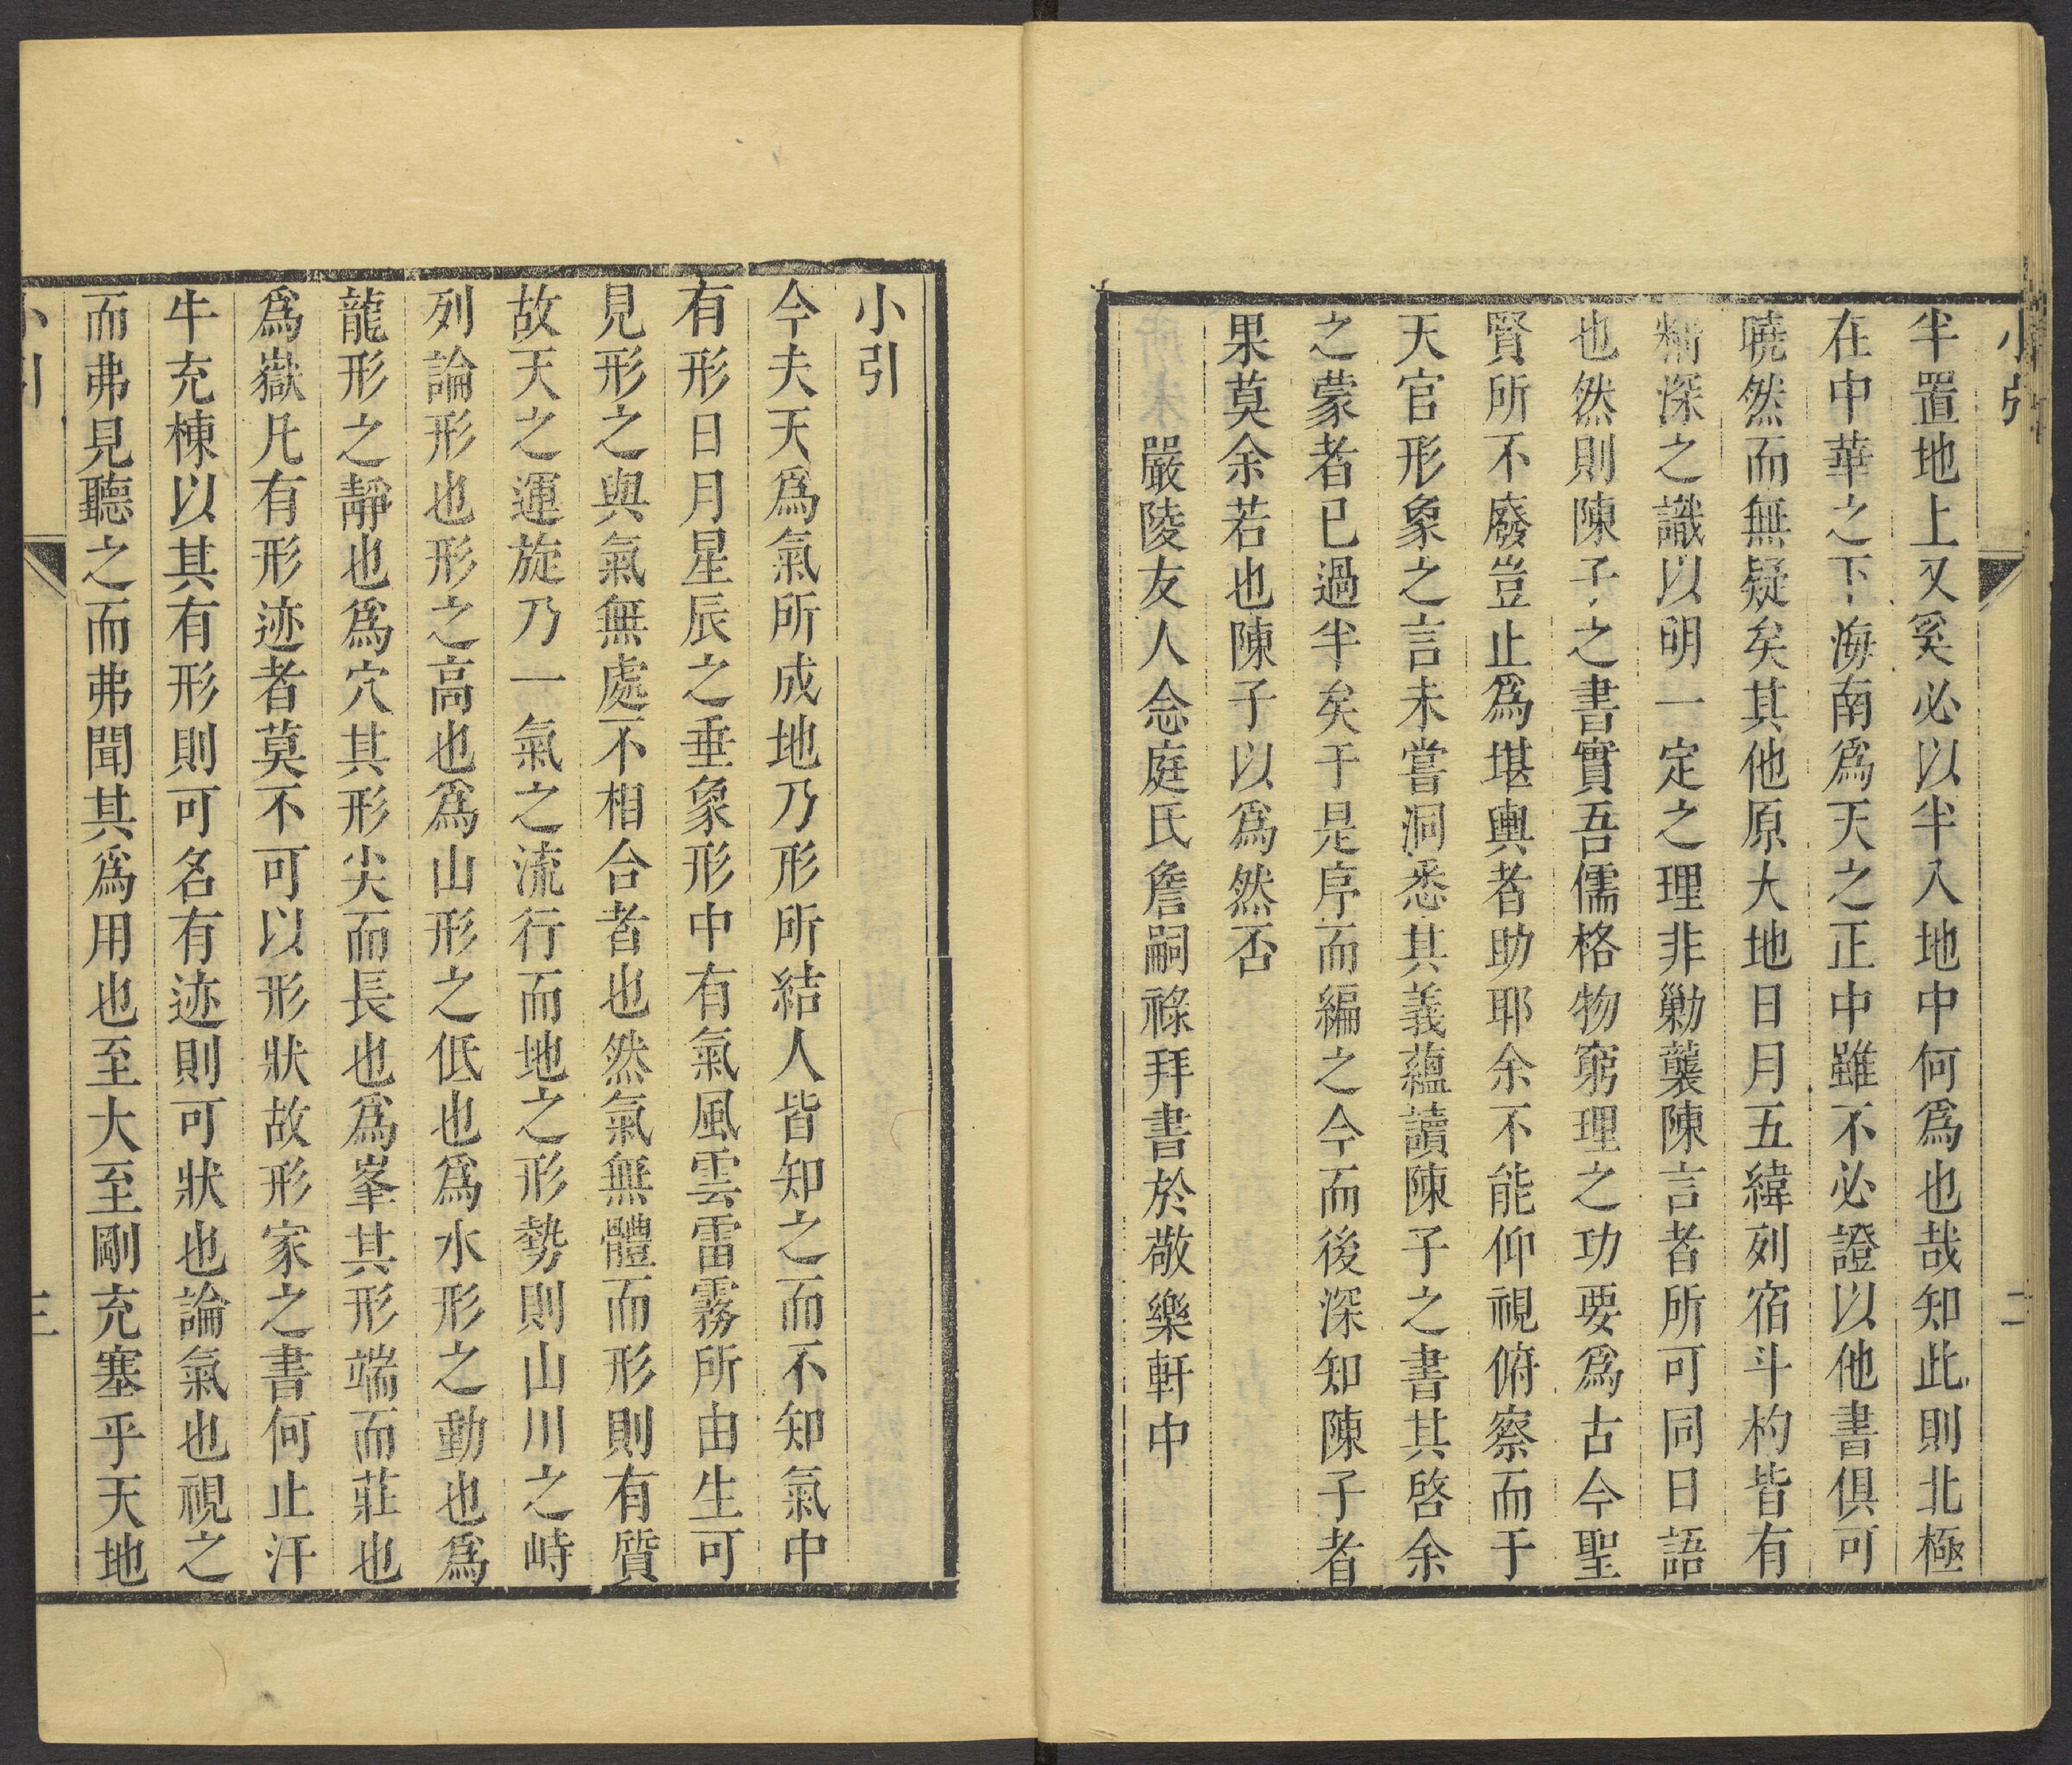 小引
二
半置地上又奚必以半入地中何爲也哉知此則北極
在中華之下海南爲天之正中雖不必證以他書俱可
曉然而無疑矣其他原大地日月五緯列宿斗杓皆有
精深之識以明一定之理非勦襲陳言者所可同日語
也然則陳子之書實吾儒格物窮理之功要爲古今聖
賢所不廢豈止爲堪輿者助耶余不能仰視俯察而于
天官形象之言未嘗洞悉其義蘊讀陳子之書其啓余
之蒙者已過半矣于是序而編之今而後深知陳子者
果莫余若也陳子以爲然否
嚴陵友人念庭氏詹嗣祿拜書於敵樂軒中
小引
今夫天爲氣所成地乃形所結人皆知之而不知氣中
有形日月星辰之垂象形中有氣風雲雷霧所由生可
見形之與氣無處不相合者也然氣無體而形則有質
故天之運旋乃一氣之流行而地之形勢則山川之峙
列論形也形之高也爲山形之低也爲水形之動也爲
龍形之靜也爲穴其形尖而長也爲峯其形端而莊也
爲嶽凡有形迹者莫不可以形狀故形家之書何止汗
牛充棟以其有形則可名有迹則可狀也論氣也視之
而弗見聽之而弗聞其爲用也至大至剛充塞乎天地
小引
三